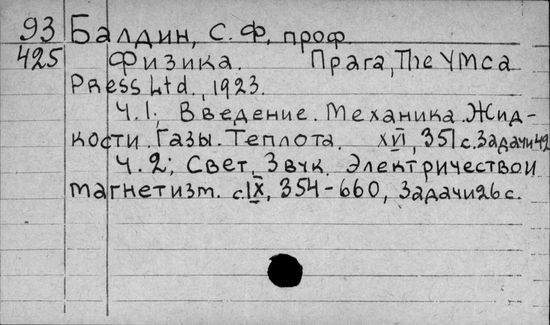 93 Балдин, С. Ф, проф
425 Физика. Прага, The Ymca
Press Ltd., 1923.
Ч.1; Введение. Механика. Жид-
кости. Газы. Теплота. XVI, 351 с. Задачи 42
Ч.2; Свет, Звук. Электричество и
магнетизм. с. IX, 354-660, Задачи 26 с.